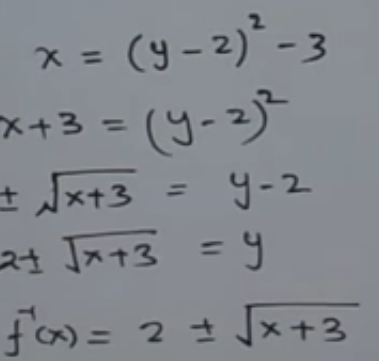 x = (y - 2)² - 3
x + 3 = (y - 2)²
± √x+3 = y - 2
2 ± √x+3 = y
f⁻¹(x) = 2 ± √x+3